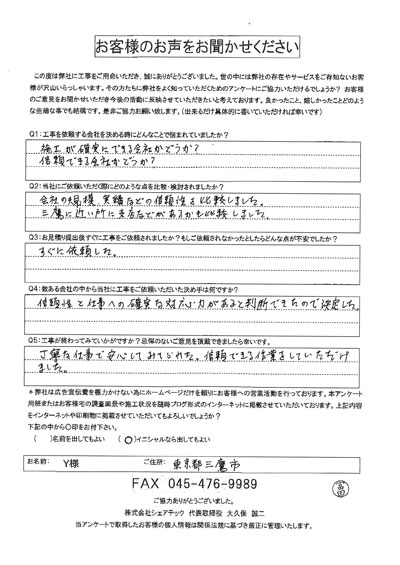 お客様のお声をお聞かせください
この度は弊社に工事をご用命いただき、誠にありがとうございました。世の中には弊社の存在やサービスをご存知ないお客
様が沢山いらっしゃいます。その方たちに弊社をよく知っていただくためのアンケートにご協力いただけるでしょうか？ お客様
のご意見をお聞かせいただき今後の活動に反映させていただきたいと考えております。良かったこと、嬉しかったことどのよう
な些細な事でも結構です。是非ご協力お願い致します。(出来るだけ具体的に書いていただければ幸いです)
Q1：工事を依頼する会社を決める時にどんなことで悩まれていましたか？
施工が確実にできる会社かどうか？
信頼できる会社かどうか？
Q2：当社にご依頼いただく際にどのような点を比較・検討されましたか？
会社の規模、実績などの信頼性を比較しました。
三鷹に近い所に支店などがあるかも比較しました。
Q3：お見積り提出後すぐに工事をご依頼されましたか？もしご依頼されなかったとしたらどんな点が不安でしたか？
すぐに依頼した。
Q4：数ある会社の中から当社に工事をご依頼いただいた決め手は何ですか？
信頼性と仕事への確実な対応力があると判断できたので決定した。
Q5：工事が終わってみていかがですか？忌憚のないご意見を頂戴できましたら幸いです。
丁寧な仕事で安心してみてられた。信頼できる作業をしていただけ
ました。
＊弊社は広告宣伝費を極力かけない為にホームページだけを頼りにお客様への営業活動を行っております。本アンケート
用紙またはお客様宅の調査風景や施工状況を随時ブログ形式のインターネットに掲載させていただいております。上記内容
をインターネットや印刷物に掲載させていただいてもよろしいでしょうか？
下記の中から〇印をお付下さい。
(　)名前を出してもよい　(○)イニシャルなら出してもよい
お名前:　Y様　ご住所:　東京都三鷹市
FAX 045-476-9989
ご協力ありがとうございました。
株式会社シェアテック 代表取締役 大久保 誠二
当アンケートで取得したお客様の個人情報は関係法規に基づき厳正に管理いたします。